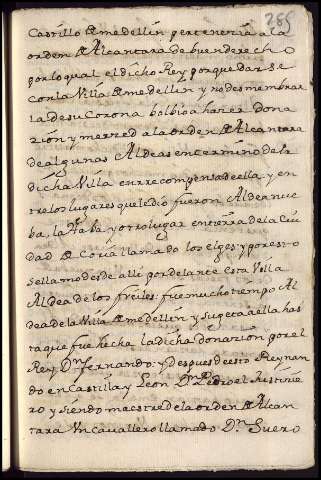 285
Castillo de medellin pertenezia a la
orden de Alcantara de buen derecho
por lo qual el dicho Rey por quedarse
con la Villa de medellin y no desmembrar
la de su Corona bolbio a hazer dona
zion y merzed a la orden de Alcantara
de algunas Aldeas en termino de la
dicha Villa en rrecompensa de ella, y en
tre los lugares que le dio fueron Aldea nue
ba, la y otro lugar en tierra de la Ciu
dad de Coria llamado los elges y por esto
se llamo desde alli por delante esta Villa
Aldea de los freiles, fue mucho tiempo Al
dea de la Villa de medellin y sugeta a ella has
ta que fue hecha la dicha donazion por el
Rey Dn. fernando: y despues de esto Reynan
do en Castilla y Leon Dn. Pedro el Justizie
ro y siendo maestre de la orden de Alcan
tara Un Cavallero llamado Dn. Suero